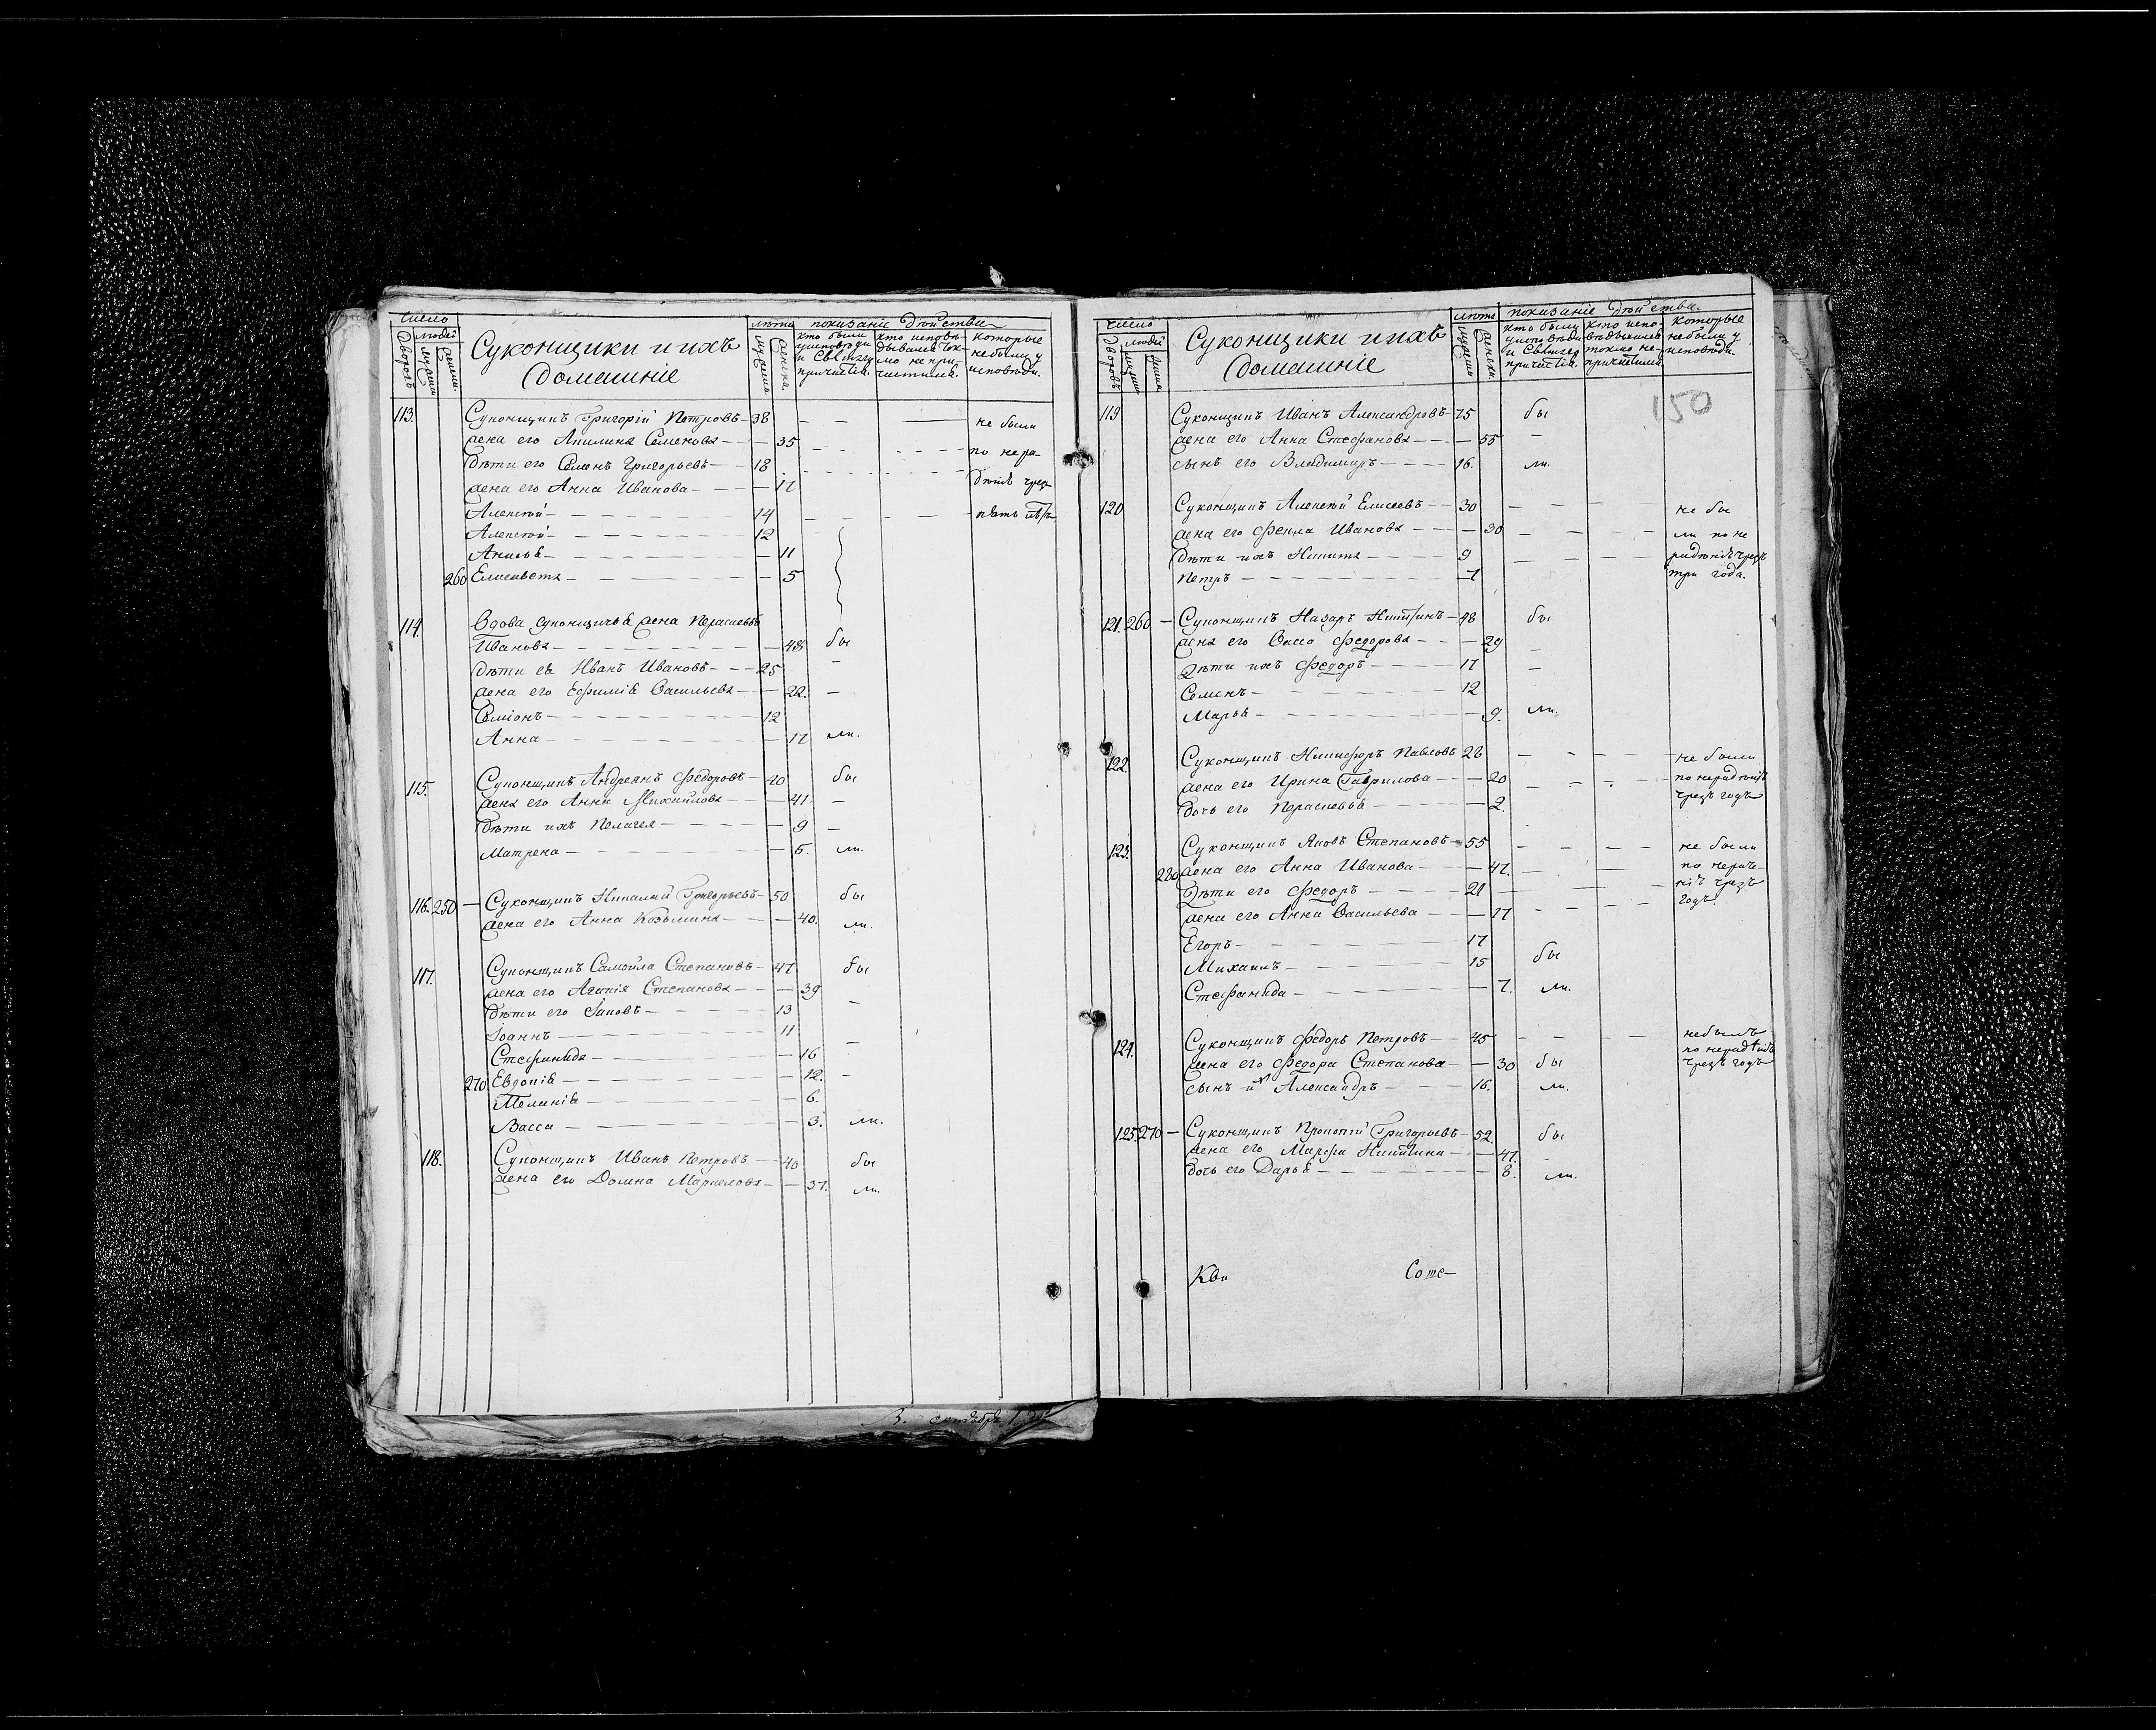 число
людей
Дворовъ
Суконщики и ихъ
Домашніе
лѣта
показаніе Дѣйства
кто были
у исповѣди
и Святаго
причастія.
кто исповѣ-
дывался ток-
мо не при-
частился.
которые
небыли у
исповѣди.
113. Суконщикъ Григорій Петровъ 38 не были
жена его Акилина Семенова 35 по нера-
дѣти его Семенъ Григорьевъ 18
жена его Анна Иванова 17 дѣнію чрез
Алексѣй 14 пять
Алексѣй 12
Анисья 11
260 Елисавета 5
114. Вдова суконщичья жена Параскевья
Иванова 48 бы
дѣти ея Иванъ Ивановъ 25
жена его Ефимія Васильева 22.
Семіонъ 12
Анна 17 ли.
115. Суконщикъ Андреянъ Федоровъ 40 бы
жена его Анна Михайлова 41
дѣти ихъ Пелагея 9
Матрена 5. ли.
116. 250 Суконщикъ Николай Григорьевъ 50 бы
жена его Анна Козьмина 40. ли.
117. Суконщикъ Самойла Степановъ 47 бы
жена его Агапія Степанова 39
дѣти его Іаковъ 13
Іоаннъ 11
Стефанида 16
270 Евдокія 12.
Меланія 6.
Васса 3. ли.
118. Суконщикъ Иванъ Петровъ 40 бы
жена его Домна Маркелова 37. ли.
З. октября
число
людей
Дворовъ
Суконщики и ихъ
Домашніе
лѣта
показаніе Дѣйства.
кто были
у исповѣди
и Святаго
причастія.
кто испо-
вѣдывался
токмо не-
причастился
которые
небыли у
исповѣди.
150
119 Суконщикъ Иванъ Александровъ 75 бы
жена его Анна Стефанова 55
сынъ его Владимиръ 16. ли.
120 Суконщикъ Алексѣй Елисеевъ 30 не бы
жена его Фекла Иванова 30 ли по не
дѣти ихъ Никита 9 радѣнію чрезъ
Петръ 7 три года.
121. 260 Суконщикъ Назаръ Никитинъ 48 бы
жена его Васса Федорова 29
Дѣти ихъ Федоръ 17
Семенъ 12
Марья 9. ли.
122. Суконщикъ Никифоръ Павловъ 22 не были
жена его Ирина Гаврилова 20 по нерадѣнію
дочь его Параскевья 2. чрезъ годъ
123. Суконщикъ Яковъ Степановъ 55 не были
280 жена его Анна Иванова 47. по нераде-
Дѣти его Федоръ 21 нію чрезъ
жена его Анна Васильева 17 годъ.
Егоръ 17
Михаилъ 15 бы
Стефанида 7. ли.
124. Суконщикъ Федоръ Петровъ 45 небылъ
по нерадѣнію
жена его Федора Степанова 30 бы чрезъ годъ
сынъ их Александръ 16. ли.
125. 270 Суконщикъ Прокопій Григорьевъ 52. бы
жена его Марфа Никитина 47.
дочь его Дарья 8. ли.